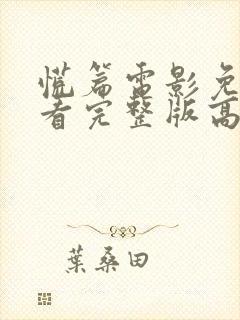 慌篇雷影免
看完整版高
葉桑田